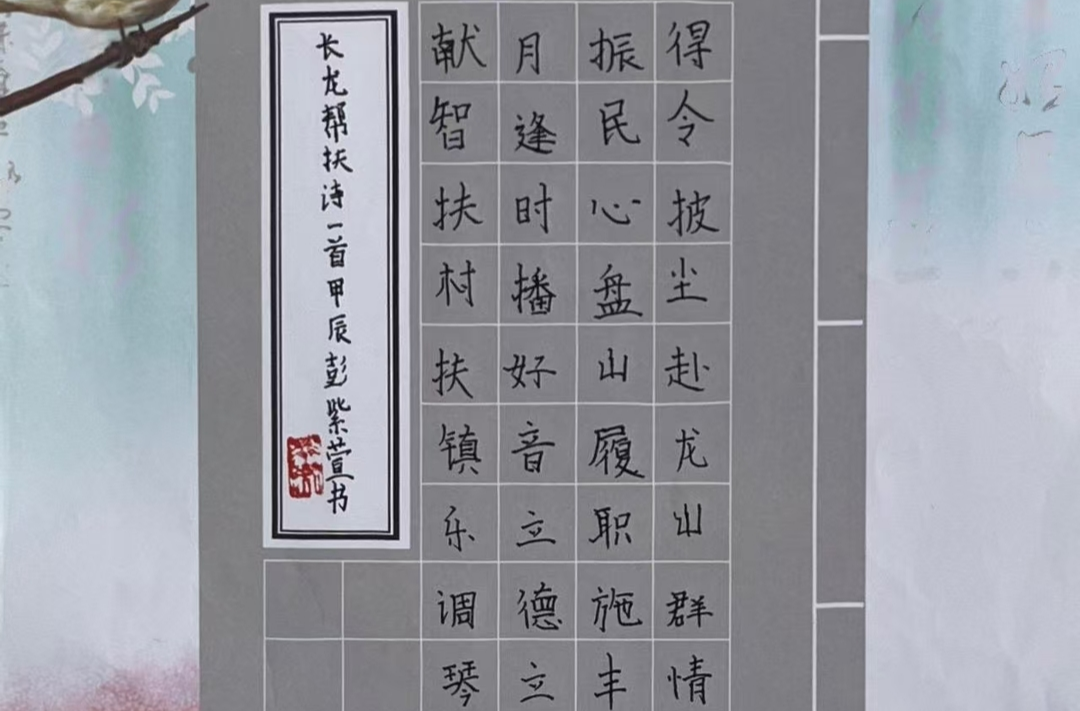 得令披尘赴龙山群情
振民心盘山履职施丰
月逢时播好音立德立
献智扶村扶镇乐调琴
长龙帮扶诗一首甲辰彭紫萱书